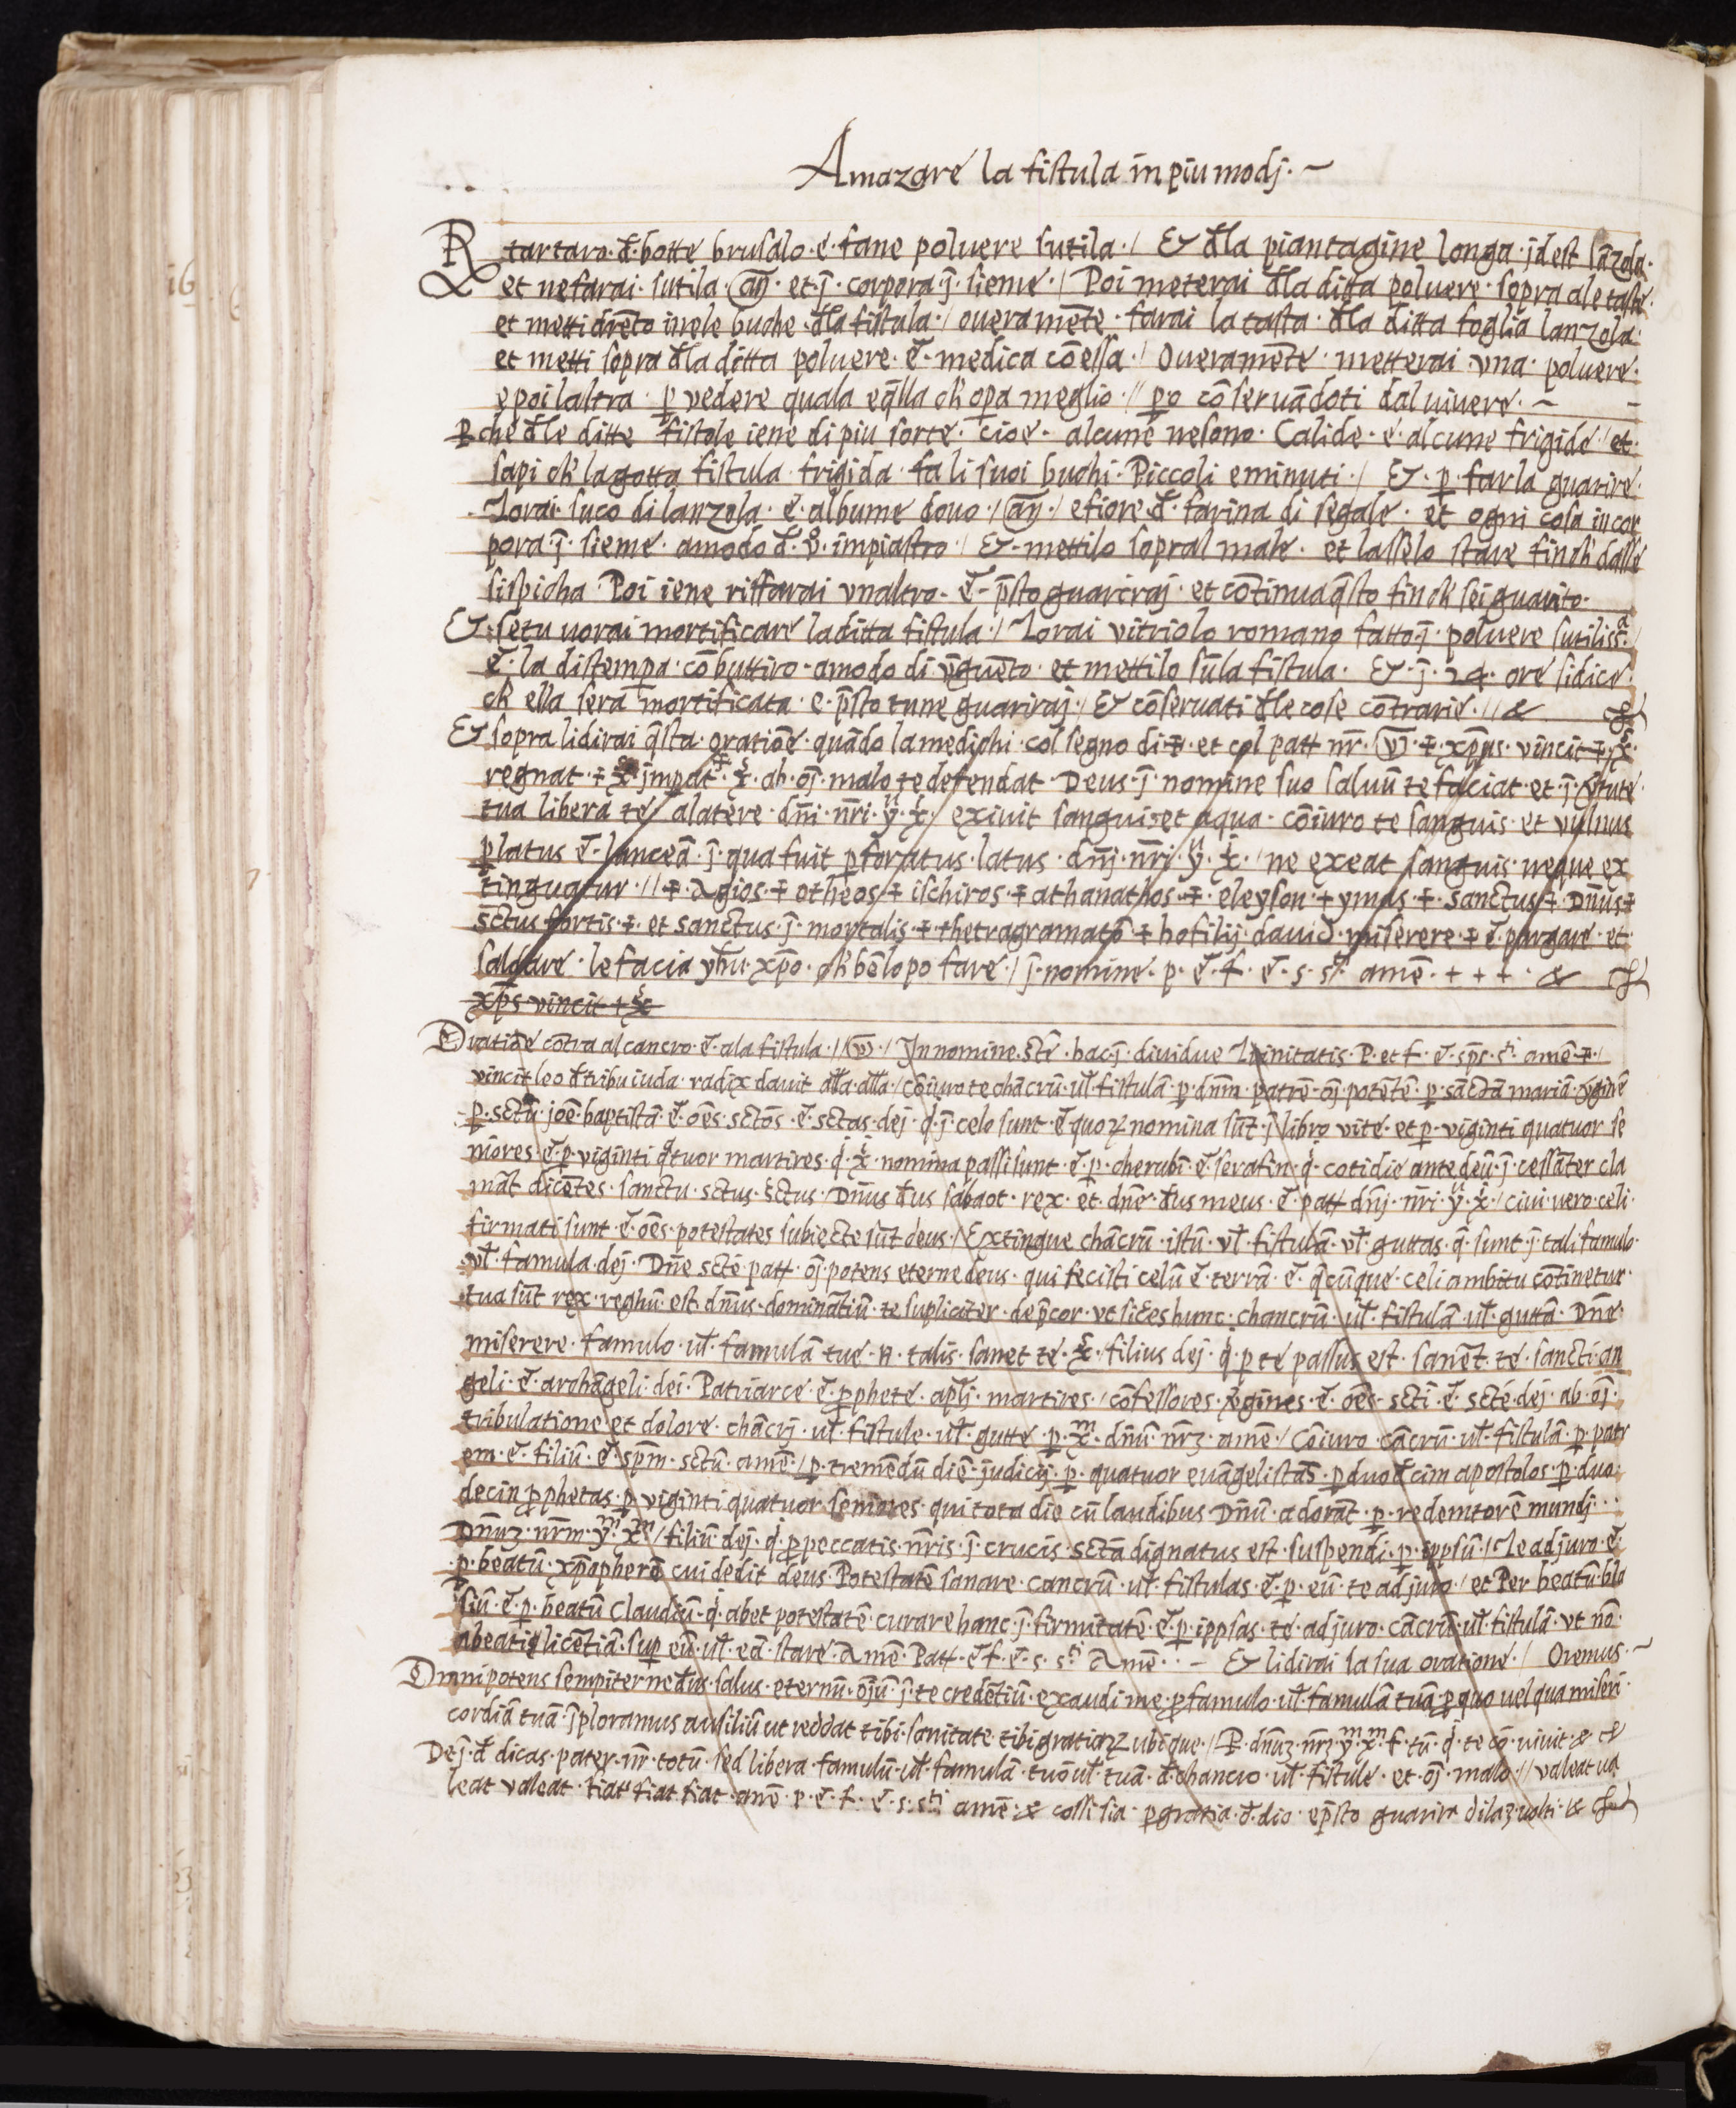 Amazare la fistula in piu modj·~
℞ tartaro · đ · botte brusalo · e · fane poluere sutila ·/ Et đla piantagine longa · jdest lãzola ·
et nefarai · sutila · añ · et · j̄ · corpora · j̄ · sieme ·/ Poi meterai đla ditta poluere · sopra ale taste ·
et metti drẽto inele buche · đla fistula ·/ oueramẽte · farai la tasta · đla ditta foglia lanzola ·
et metti sopra đla ditta poluere · ē · medica cõessa ·/ Oueramẽte · metterai · vna · poluere ·
e poi laltra · ꝑ vedere quala eq̃lla cħ opa meglio ·// ꝑo cõseruãdoti dal viuere · ~
ꝑche đle ditte fistole iene di piu sorte · cioe · alcune nesono · Calide · e · alcune frigide ·/ et ·
sapi cħ la gotta fistula · frigida · fa li suoi buchi · Piccoli e minuti ·/ Et · ꝑ · farla guarire ·
Torai · suco di lanzola · e · albume douo ·/ añ ·/ e fiore · đ · farina di segale · et ogni cosa incor
pora · j̄ · sieme · amodo · đ · v̊ · impiastro ·/ Et · mettilo sopral male · et lasselo stare fincħ dasse
sispicha Poi iene riffarai vnaltro · ē · p̄sto guariraj · et cõtinua q̄sto fincħ sei guarito ·
Et · se tu uorai mortificare la ditta fistula ·/ Torai vitriolo romano fatto · j̄ · poluere sutilissᵃ·/
ē · la distempa · cõ buttiro · amodo di v̄guẽto · et mettilo sũla fistula · Et · j̄ · 24 · ore si dice ·
cħ ella sera mortificata · e · p̄sto tune guariraj ·/ Et cõseruati đle cose cõtrarie ·// &
Et sopra li dirai q̄sta · oratiõe · quãdo la medichi · col segno di · ‡ · et col patł nr̃ · ‡ · xp̃us · vincit · ‡ · x̊ ·
regnat · ‡ · x̊ · jmpat · ‡ · x̊ · ab · oj̄ · malo te defendat · Deus · j̄ · nomine suo saluũ te faciat · et · j̄ · v̊tute ·
tua libera te / alatere · dñi · nr̃i · ÿ · x̊ ·/ exiuit sanguis et aqua · cõiuro te sanguis · et vulnus
ꝑlatus ē · lanceã · j̄ · qua fuit ꝑforatus · latus · dñj · nr̃i · ÿ · x̊ ·/ ne exeat sanguis · neque ex
tinguatur ·// ‡ · agios · ‡ otheos · ‡ ischiros · ‡ athanathos · ‡ · eleyson · ‡ ymas · ‡ · sanctus · ‡ · Dñus ‡
sctus fortis · ‡ · et sanctus · j̄ · mortalis · ‡ · thetragramatõ ‡ hofilij · dauid · miserere · ‡ ē · purgare · et ·
saldare · le facia yh̃u · xp̃o · cħ bẽ lo po fare ·/ j̄ · nomine · p · ē · f · ē · s · sᵗⁱ amẽ · + + + · &
xp̃s vincit + x̊
Oratiõe cõtra al cancro · ē · ala fistula ·// Jn nomine · sctẽ · hac · j̄ · diuidue Trinitatis · P · et f · ē · sp̃s · sᵗⁱ amẽ · ‡ ·/
vincit leo đ tribu iuda · radix dauit ałła · ałła ·/ cõiuro te chãcrũ · uł · fistulã · ꝑ · dñm · patrẽ · oj̄ · potẽtẽ · ꝑ · sãctã mariã · v̊ginẽ
ꝑ · sctũ · joẽ · baptistã · ē · oẽs · sctos · ē · sctas · dej · q̊ · j̄ · celo sunt · ē quoꝝ nomina sũt · j̄ libro vite · et ꝑ · viginti quatuor se
niores · ē · ꝑ · viginti q̊tuor martires · q̊ · x̊ · nomina passi sunt · ē · ꝑ · cherubĩ · ē · serafin · q̊ · cotidie ante deũ · j̄ · cessãter cla
mãt dicẽtes · sanctu · sctus · sctus · Dñus đus sabaot · rex · et · dñe · đus meus · ē · patł dñj · nr̃i · ÿ · x̊ ·/ ciui · vero · celi ·
firmati sunt · ē · oẽs · potestates subiecte sũt deus ·/ Extingue chãcrũ · istũ · vł · fistulã · vł · guttas · q̄ · sunt · j̄ · tali famulo ·
vł · famula · dej · Dñe sctẽ · patł · oj̄ · potens eterne deus · qui fecisti celũ ē · terrã · ē · q̄cũque · celi ambitu cõtinetur ·
tua sũt rex · reghũ · est · dñus · dominãtiũ · te supliciter · dep̄cor · vt sicces hunc · chancrũ · uł · fistulã · uł · guttã · Dñe ·
miserere · famulo · uł · famulã tue · n · talis · sanet te · x̊ · filius dej · q̊ · ꝑ te passus est · sanẽt · te · sancti · an
geli · ē · archãgeli · dei · Patriarce · ē · ꝓphete · apłj · martires ·/ cõfessores · v̊gines · ē · oẽs · scti · ē · sctẽ · dej · ab · oj̄ ·
tribulatione et dolore · chãcrj · uł · fistule · uł · gutte · ꝑ · xᵐ · dñũ · nr̃ꝫ · amẽ ·/ Cõiuro · cãcrũ · uł · fistulã · ꝑ · patr
em · ē · filiũ · ē · sp̃m · sctũ · amẽ ·/ ꝑ · tremẽdũ diẽ · judicij · ꝑ · quatuor euãgelistas · ꝑ duođcim apostolos · ꝑ · duo ·
decin ꝓphetas · ꝑ viginti quatuor seniores · qui tota die cũ laudibus Dñũ · adorãt · ꝑ · redemtorẽ mundj ·
Dñuꝫ · nr̃m · yᵐ · xᵐ / filiũ · dej · q̊ · ꝓ peccatis · nr̃is · j̄ · crucis · sctã dignatus est · suspendi · ꝑ · ippsũ ·/ te adjuro · ē
ꝑ · beatũ · xp̃opherẽ cui dedit deus · Potestatẽ sanare · cancrũ · uł · fistulas · ē · ꝑ · eũ · te adjuro ·/ et Per beatũ bla
siũ · ē · ꝑ · beatũ Claudiũ · q̊ · abet potestatẽ · curare hanc · j̄ · firmitatẽ · ē · ꝑ · ippsas · te · adjuro · cãcrũ · uł · fistulã · vt nõ ·
abeatis licẽtiã · suꝑ eũ · uł · eã · stare · amẽ · Patł · ē f · ē · s · sᵗⁱ amẽ · ~ Et li dirai la sua oratione ·/ Oremus ·~
Omnipotens sempiterne đus · salus · eternũ · oj̄ũ · j̄ · te credẽtiũ · exaudi me · ꝓ famulo · uł · famulã tuã ꝓ quo uel qua miseri ·
cordiã tuã · j̄ploramus ausiliũ ut reddat tibi · sanitate · tibi gratiaꝝ ubique ·/ P · dñuꝫ · nr̃ꝫ · yᵐ · xᵐ · f · tũ · q̊ · te cõ · uiuit · &
Dej̄ · đ dicas · pater · nr̃ · totũ · sed libera · famulũ · uł · famulã · tuõ uł · tuã · đ · chancro · uł · fistule · et · oj̄ · malo ·// valeat ua
leat valeat · fiat fiat fiat · amẽ · p · ē · f · ē · s · sᵗⁱ amẽ · & cossi sia · ꝑ gratia · đ · dio · e p̄sto guarira